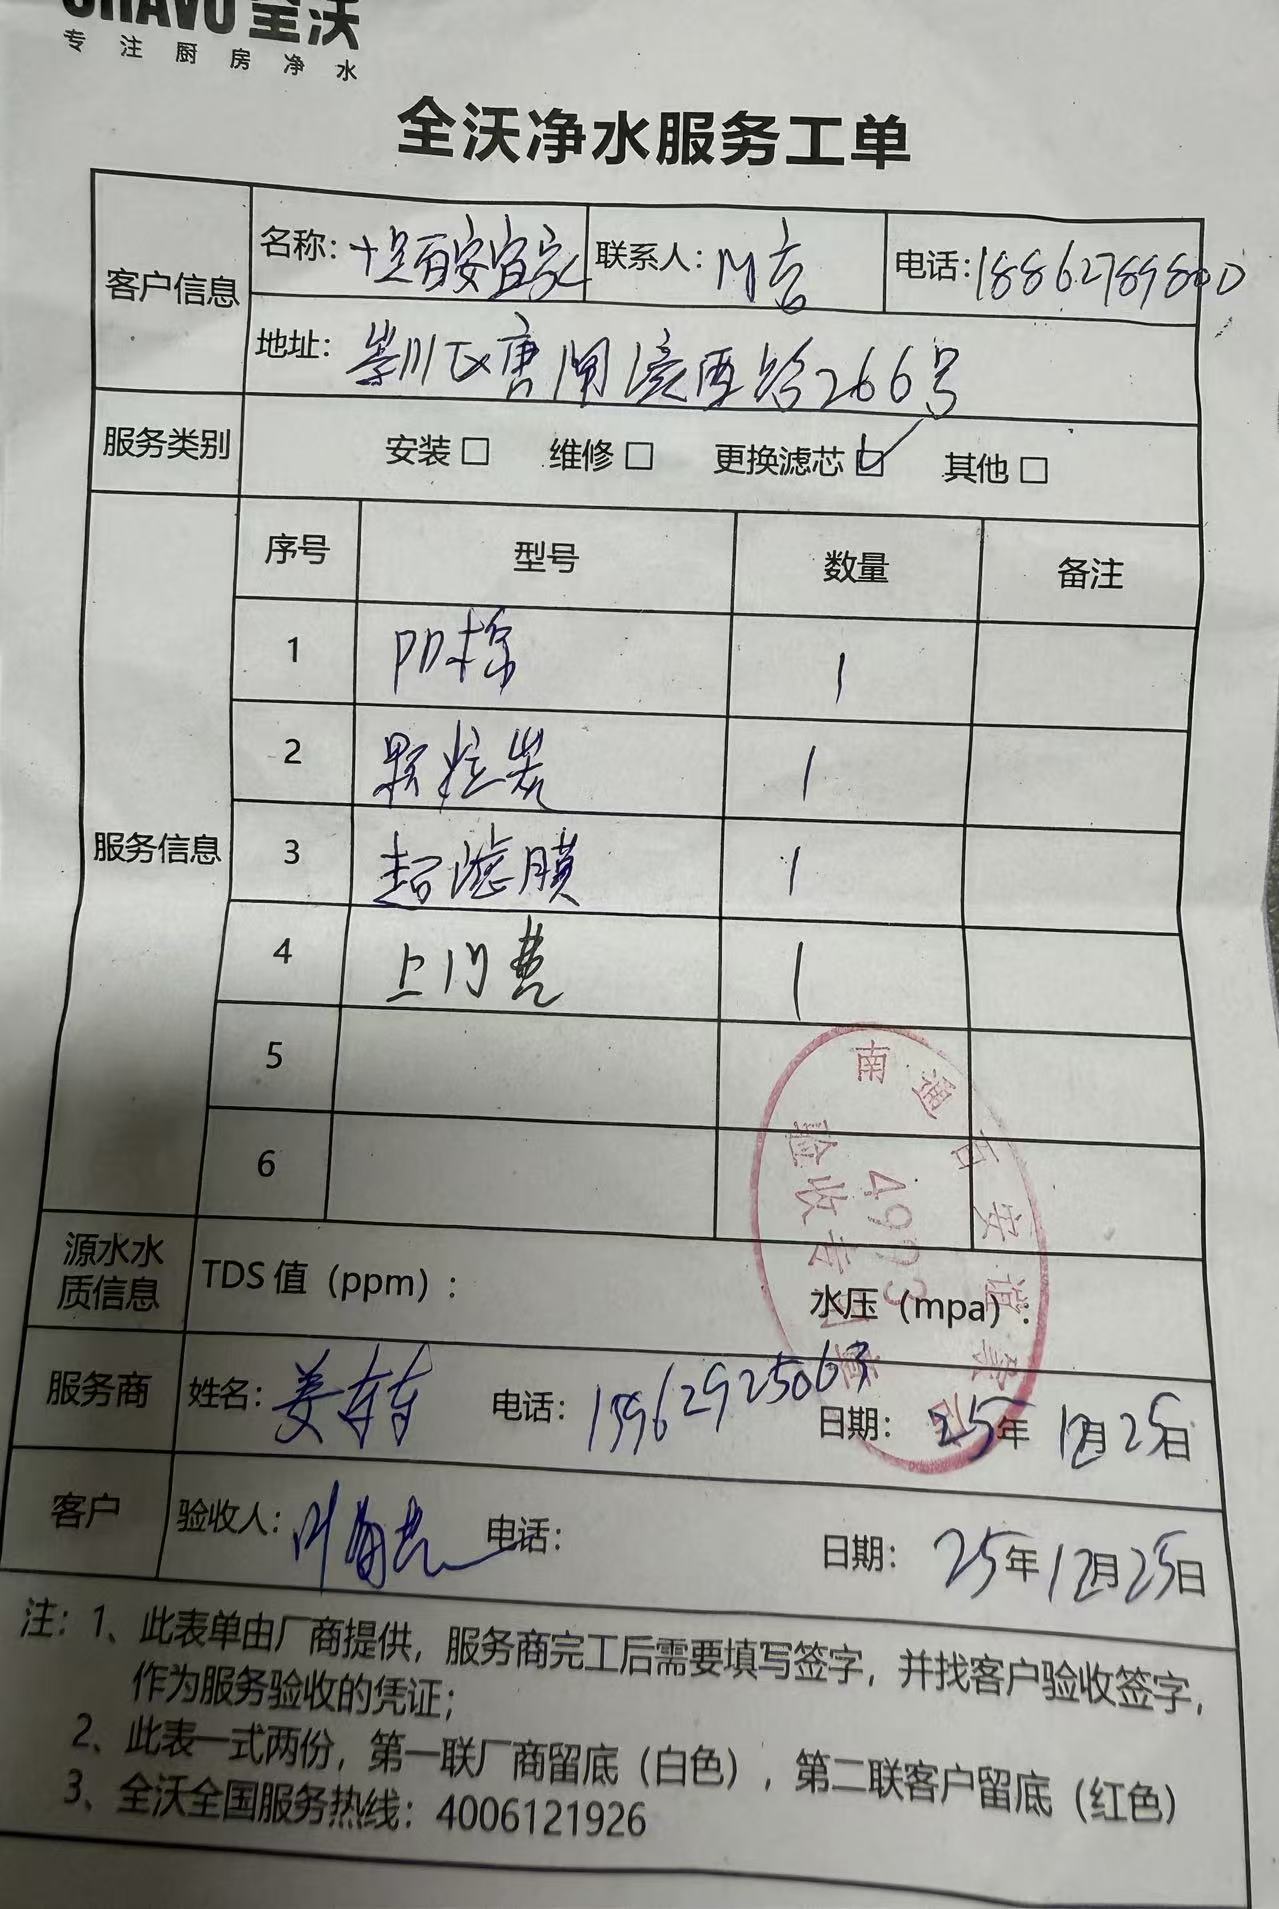 全沃
专注厨房净水
全沃净水服务工单
客户信息
名称：十足百安宜家 联系人： 电话：18862789800
地址：崇川区唐闸镇西路266号
服务类别 安装□ 维修□ 更换滤芯☑ 其他□
服务信息
序号 型号 数量 备注
1 PP棉 1
2 颗粒炭 1
3 超滤膜 1
4 上门费 1
5
6
源水水质信息 TDS 值（ppm）： 水压（mpa）：
服务商 姓名：姜 电话： 日期：25年12月25日
客户 验收人： 电话： 日期：25年12月25日
南通百安谊家
4993
验收专用章
注：1、此表单由厂商提供，服务商完工后需要填写签字，并找客户验收签字，
作为服务验收的凭证；
2、此表一式两份，第一联厂商留底（白色），第二联客户留底（红色）
3、全沃全国服务热线：4006121926